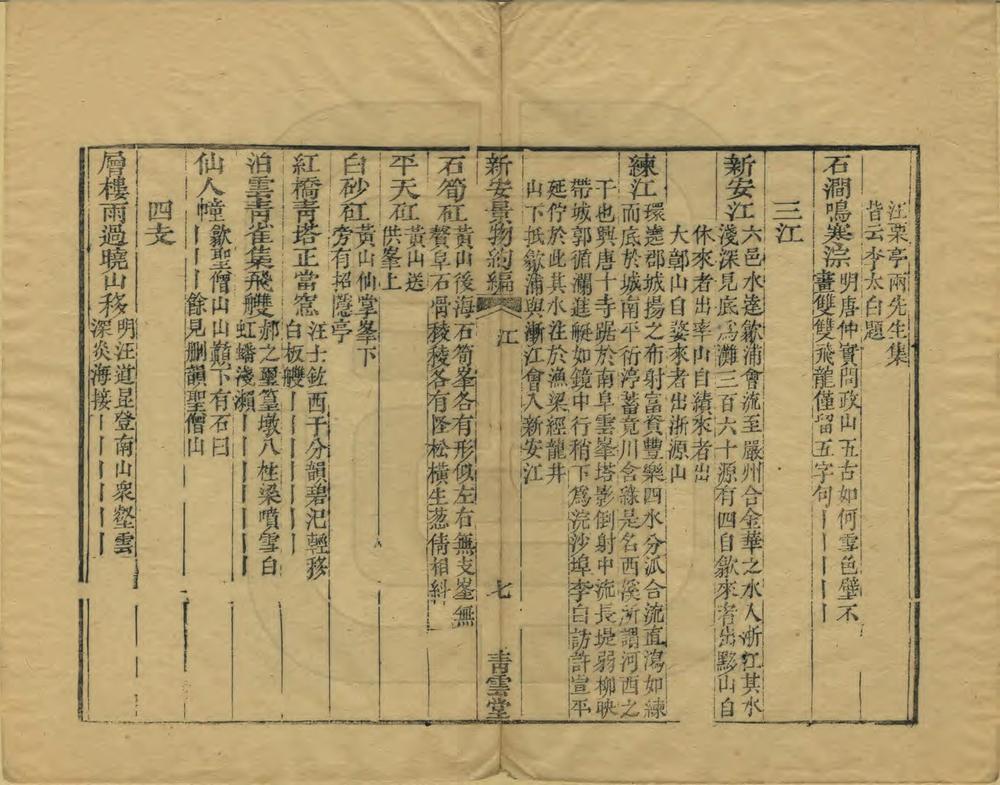 汪栗亭兩先生集
皆云李太白題
石澗鳴寒淙
明唐仲實問政山五古如何雪色壁不
畫雙雙飛龍僅留五字句｜｜｜｜｜
三江
新安江
六邑水達歙浦會流至嚴州合金華之水入浙江其水
淺深見底爲灘三百六十源有四自歙來者出黟山自
休來者出率山自績來者出
大鄣山自婺來者出浙源山
練江
環遶郡城揚之布射富資豐樂四水分派合流直瀉如練
江而底於城南平衍渟蓄竟川含綠是名西溪所謂河西之
干也興唐十寺踞於南阜雲峯塔影倒射中流長堤弱柳映
帶城郭循瀾進艇如鏡中行稍下爲浣沙埠李白訪許宣平
延佇於此其水注於漁梁經龍井
山下抵歙浦與漸江會入新安江
新安景物約編
江
七
青雲堂
石筍矼
黃山後海石筍峯各有形似左右無支峯無
贅阜石骨稜稜各有怪松橫生葱倩相糾
平天矼
黃山送
供峯上
白砂矼
黃山仙掌峯下
旁有招隱亭
紅橋青塔正當窓
汪士鋐西干分韻碧汜輕移
白板艭｜｜｜｜｜｜｜
泊雲靑雀集飛艭
郝之璽篁墩八柱梁噴雪白
虹蟠淺瀨｜｜｜｜｜｜｜
仙人幢
歙聖僧山山巔下有石曰
｜｜｜餘見刪韻聖僧山
四支
層樓雨過曉山移
明汪道昆登南山衆壑雲
深炎海接｜｜｜｜｜｜｜